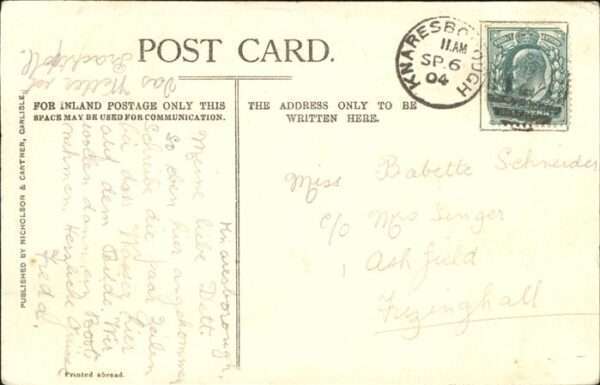 POST CARD.
KNARESBOROUGH
11.AM
SP. 6
04
FOR INLAND POSTAGE ONLY THIS
SPACE MAY BE USED FOR COMMUNICATION.
THE ADDRESS ONLY TO BE
WRITTEN HERE.
Miss Babette Schneider
c/o Mrs Singer
1 Ashfield
Frizinghall
Knaresborough,
Meine liebe Detti
So eben hier angekommen
Schreibe die paar Zeilen
das Wasser hier
auf dem Bilde. Wir
wollen dann ein Boot
nehmen. Herzliche
Freda.
Das Wetter ist
Prachtvoll.
PUBLISHED BY NICHOLSON & CARTNER, CARLISLE.
Printed abroad.